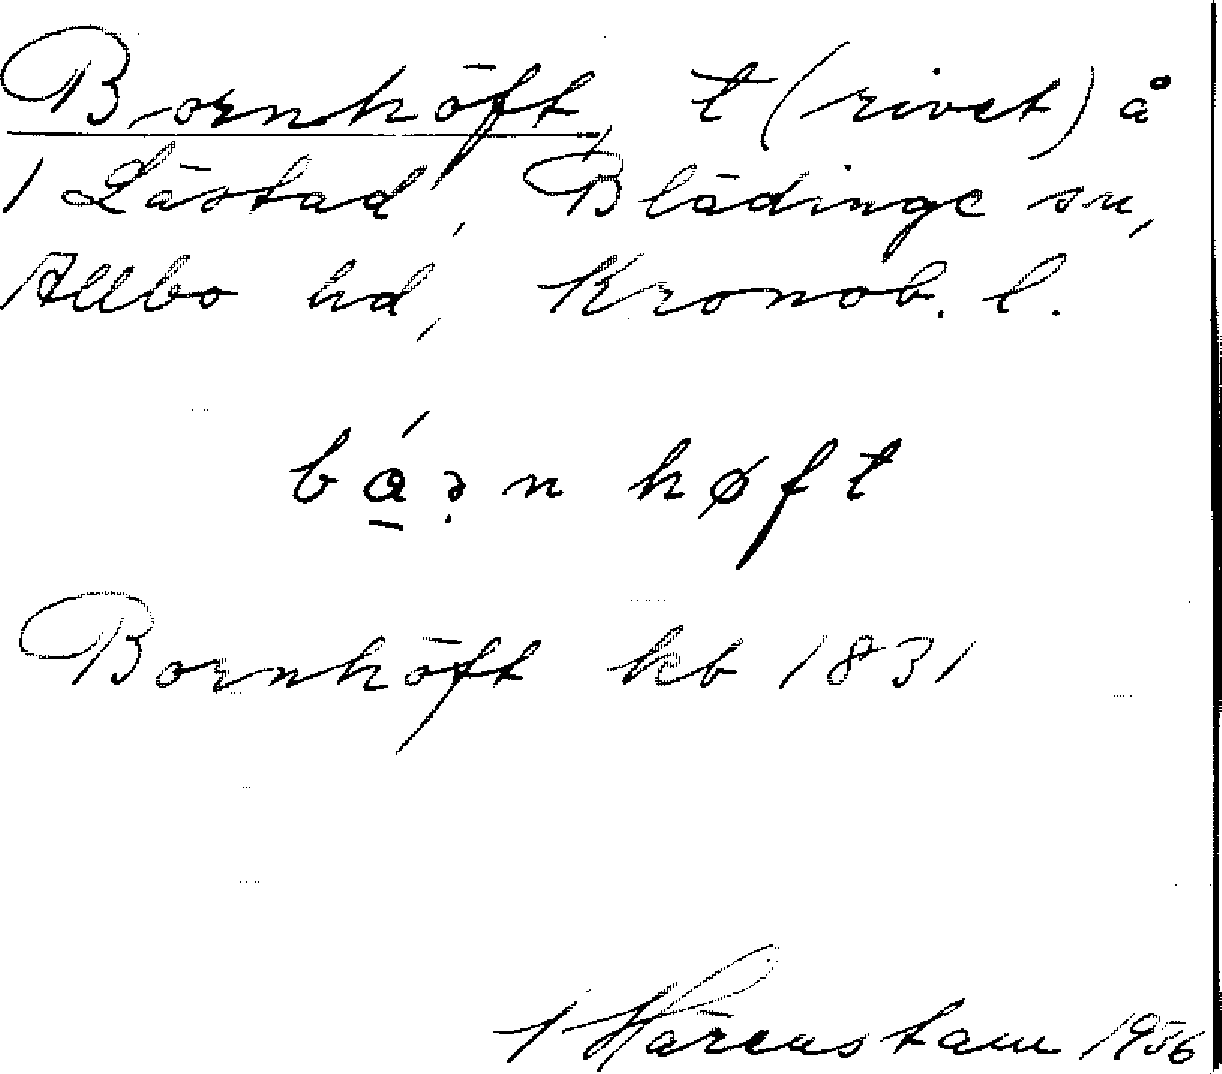 Bornhöft, t (rivet) å
1 Lästad, Blädinge sn,
Allbo hd, Kronob. l.
bá̱ɂn høft
Bornhöft kb 1831
Härenstam 1956